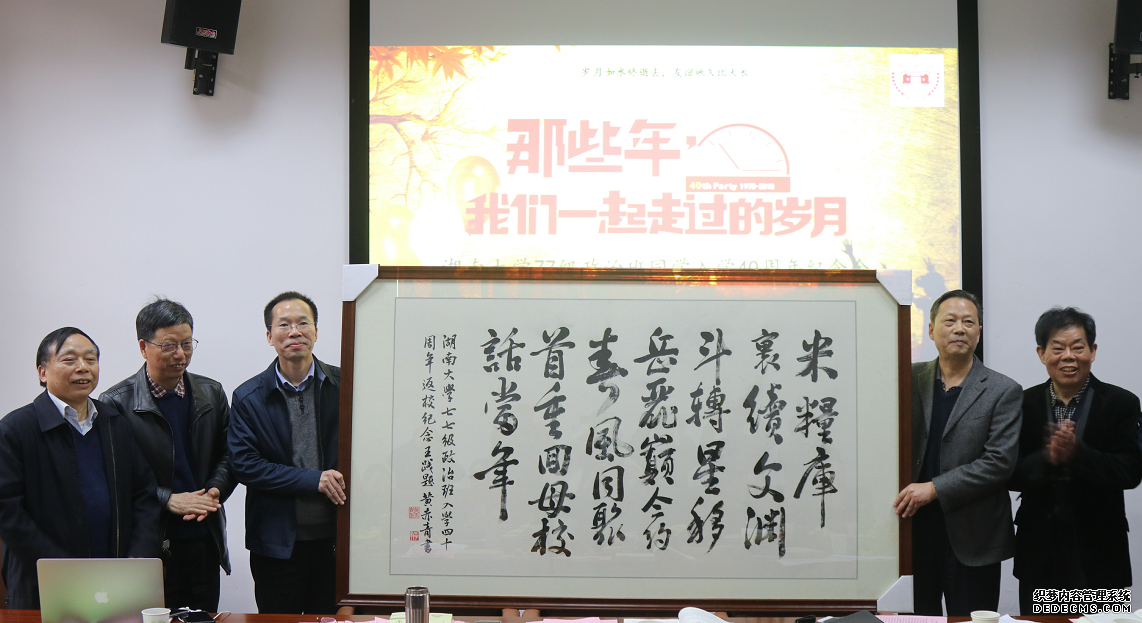 岁月如水终逝去，友谊地久比天长
那些年，
40th Party 1978-2018
我们一起走过的岁月
湖南大学77级政治班同学入学40周年纪念会
米糧庫
裏續文淵
斗轉星移
岳麓巔今約
春風同聚
首重回母校
話當年
湖南大學七七級政治班入學四十
周年返校紀念 王 題 黄赤青書
织梦内容管理系统
DEDECMS.COM